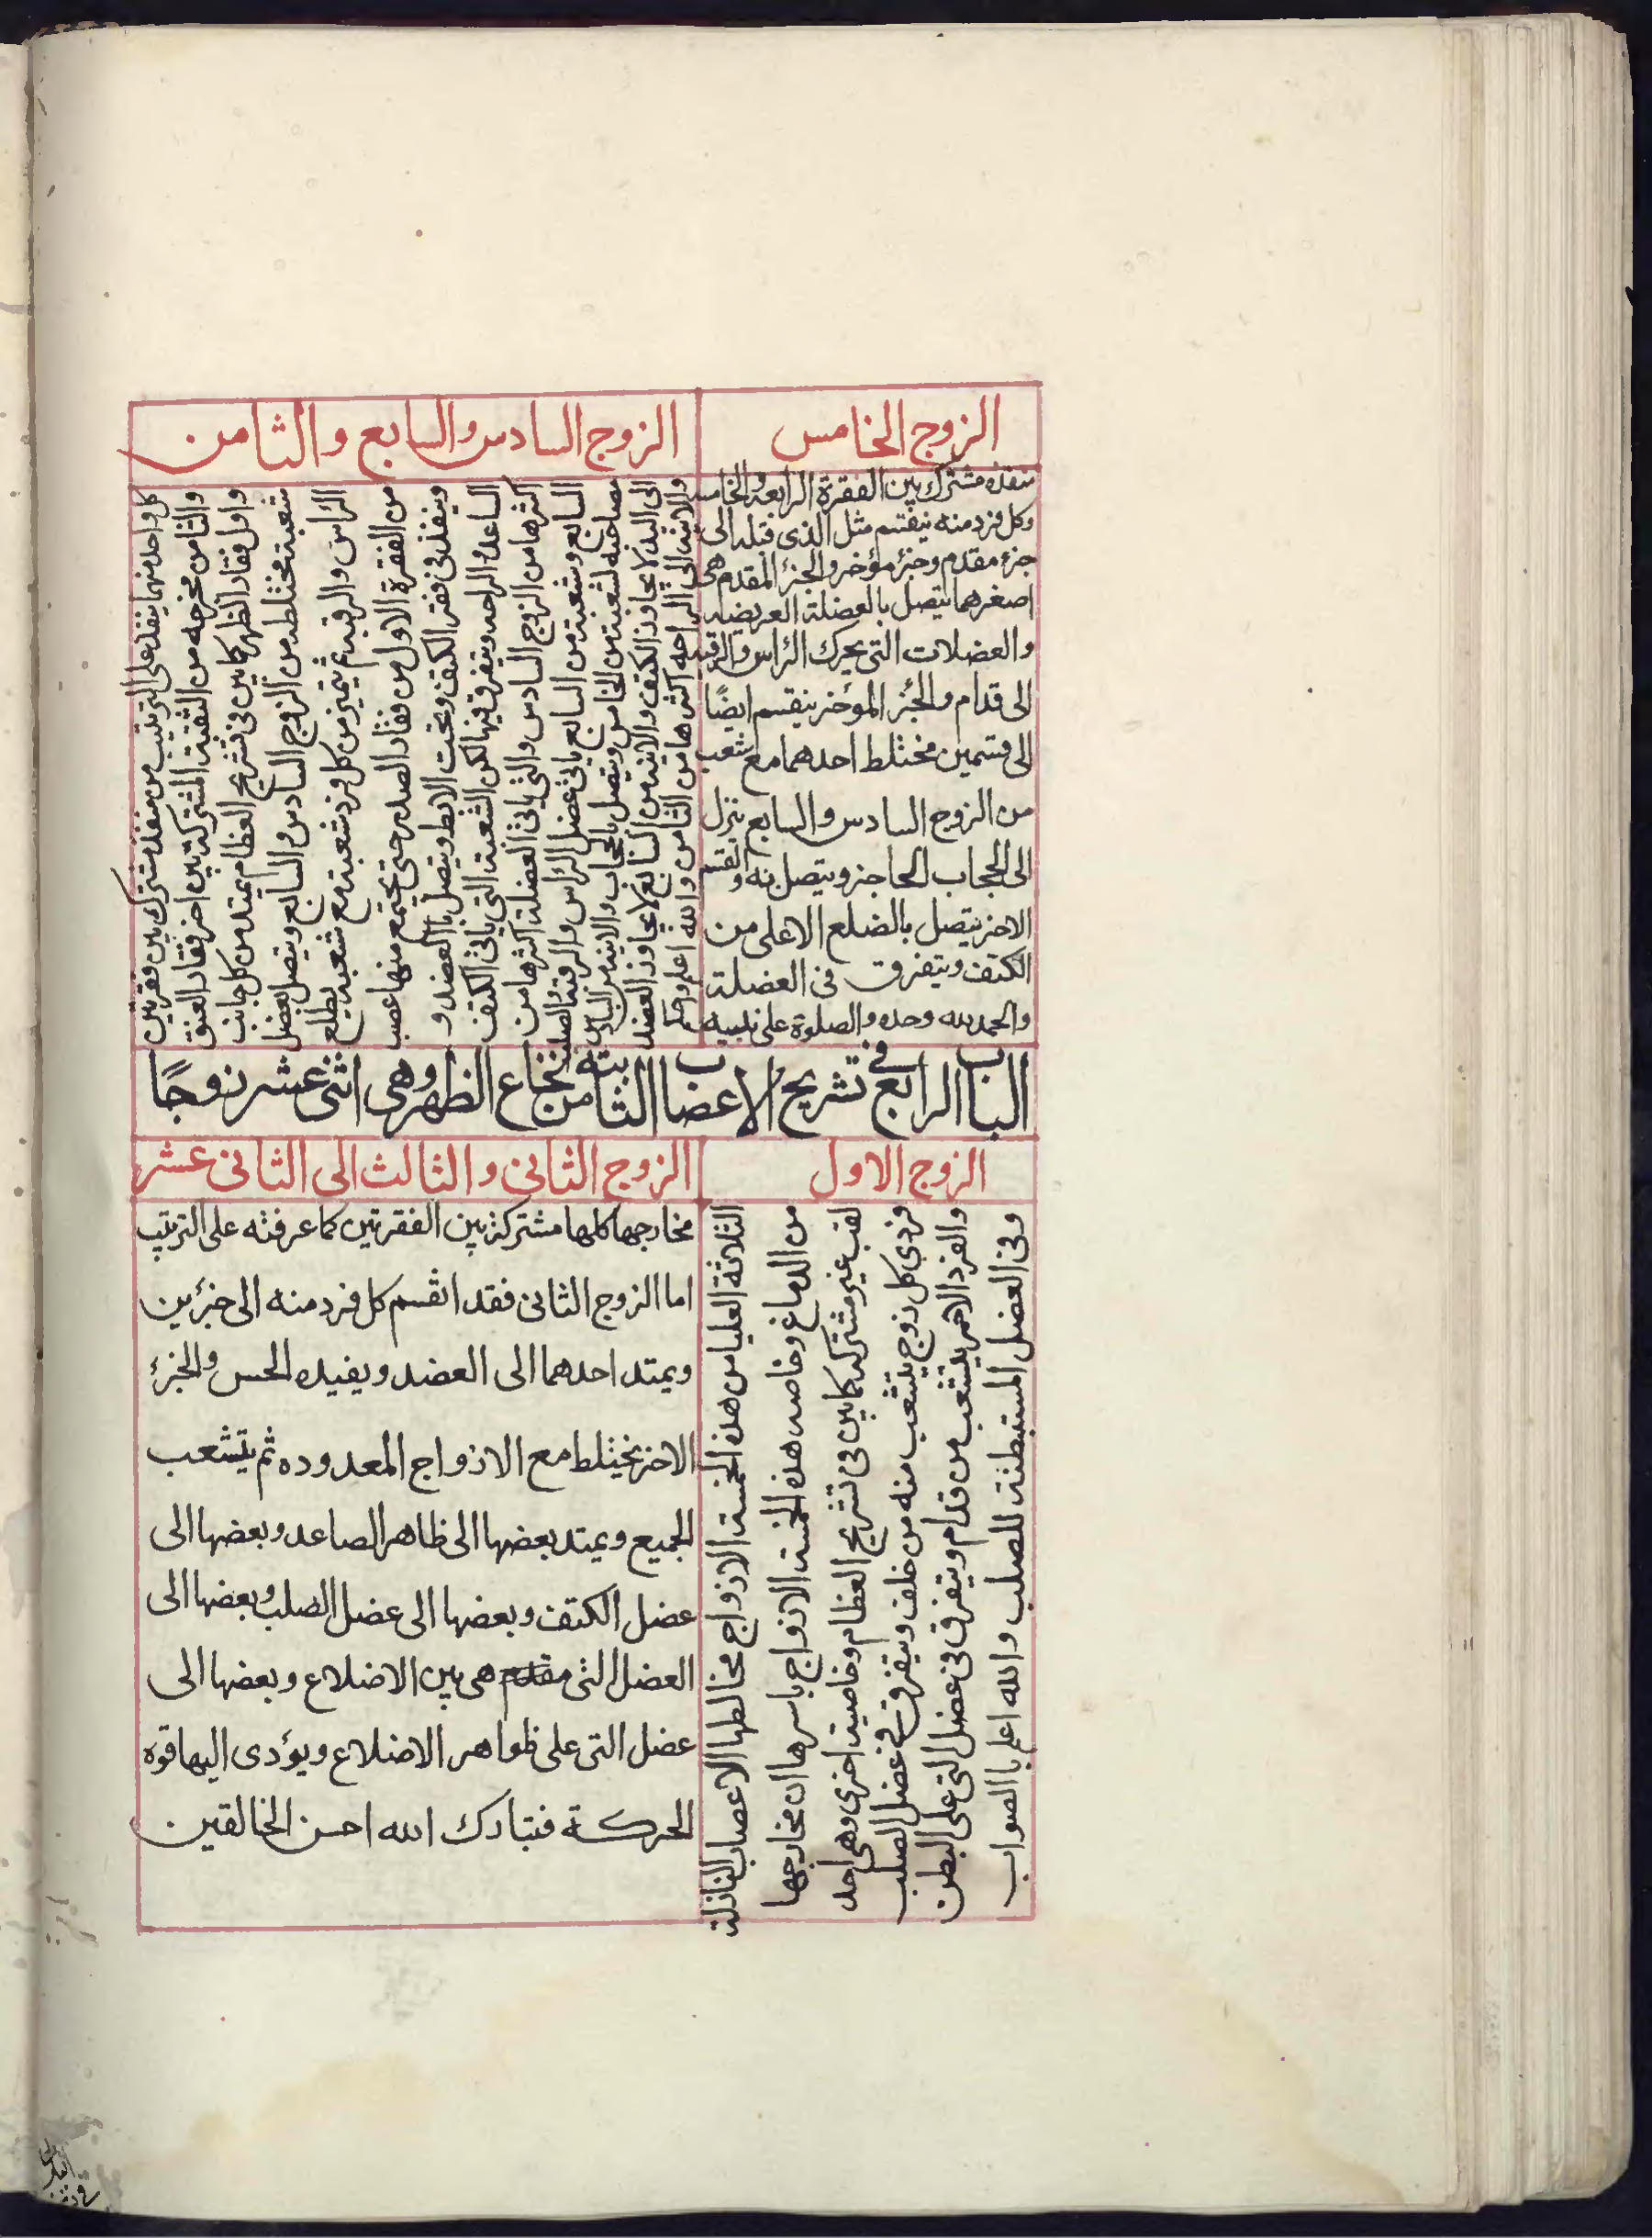 الزوج الخامس
منفذه مشترك بين الفقرة الرابعة والخامسة
وكل فرد منه ينقسم مثل الذى قبله الى
جزء مقدم وجزء مؤخر والجزء المقدم هى
اصغرهما يتصل بالعضلة العريضه
والعضلات التى يحرك الراس والرقبه
الى قدام والجزء المؤخر ينقسم ايضًا
الى قسمين مختلط احدهما مع شعب
من الزوج السادس والسابع ينزل
الى الحجاب الحاجز ويتصل به والقسم
الاخر يتصل بالضلع الاعلى من
الكتف ويتفرق فى العضلة
والحمد لله وحده والصلوة على نبيه
الزوج السادس والسابع والثامن
كل واحد منهما ينفذ على الترتيب من منفذ مشترك بين فقرتين
والثامن مخرجه من الثقبة المشتركة بين اخر فقار العنق
واول فقار الظهر كما بين فى تشريح العظام يمتد من كل جانب
شعبة مختلطه من الزوج السادس والسابع ويتصل بعضل
الراس والرقبه ثم يتميز من كل فرد شعبة مع شعبة يطلع
من الفقرة الاول من فقار الصدر حتى يجتمع منها عصب
وينفذ فى فقر الكتف وتحت الابط ويتصل بالعضد و
الساعد والراحه ويتفرق فيها لكن الشعبة التى ياتى الكتف
اكثرها من الزوج السادس والتى ياتى العضلة اكثرها من
السابع وشعبة من السابع ياتى عضل الراس والرقبة والصلب
مصاحبه لشعبة من الخامس ويتصل بالحجاب والاتية من السادس
الى اليد لا يجاوز الكتف والاتية من السابع لا يجاوز العضد
والاتية الى الراحه اكثرها من الثامن والله اعلم
الباب الرابع فى تشريح الاعضاب الثابتة من نخاع الظهر وهى اثنى عشر زوجًا
الزوج الاول
الثلاثة العليا من هذه الخمسة الازواج مخالطها الاعصاب النازلة
من الدماغ وخاصه هذه الخمسة الازواج باسرها ان مخارجها
ثقب غير مشتركه كما بين فى تشريح العظام وخاصية اخرى وهى احد
فردي كل زوج يتشعب منه من خلف ويتفرق فى عضل الصلب
والفرد الاخر يتشعب من قدام ويتفرق فى عضل التى على البطن
وفى العضل المستبطنة للصلب والله اعلم بالصواب
الزوج الثانى والثالث الى الثانى عشر
مخارجها كلها مشتركة بين الفقرتين كما عرفته على الترتيب
اما الزوج الثانى فقد انقسم كل فرد منه الى جزئين
ويمتد احدهما الى العضد ويفيده الحس والجزء
الاخر يختلط مع الازواج المعدوده ثم يتشعب
الجميع ويمتد بعضها الى ظاهر الصاعد وبعضها الى
عضل الكتف وبعضها الى عضل الصلب وبعضها الى
العضل التى مقدم هى بين الاضلاع وبعضها الى
عضل التى على ظواهر الاضلاع ويؤدى اليها قوه
الحركة فتبارك الله احسن الخالقين